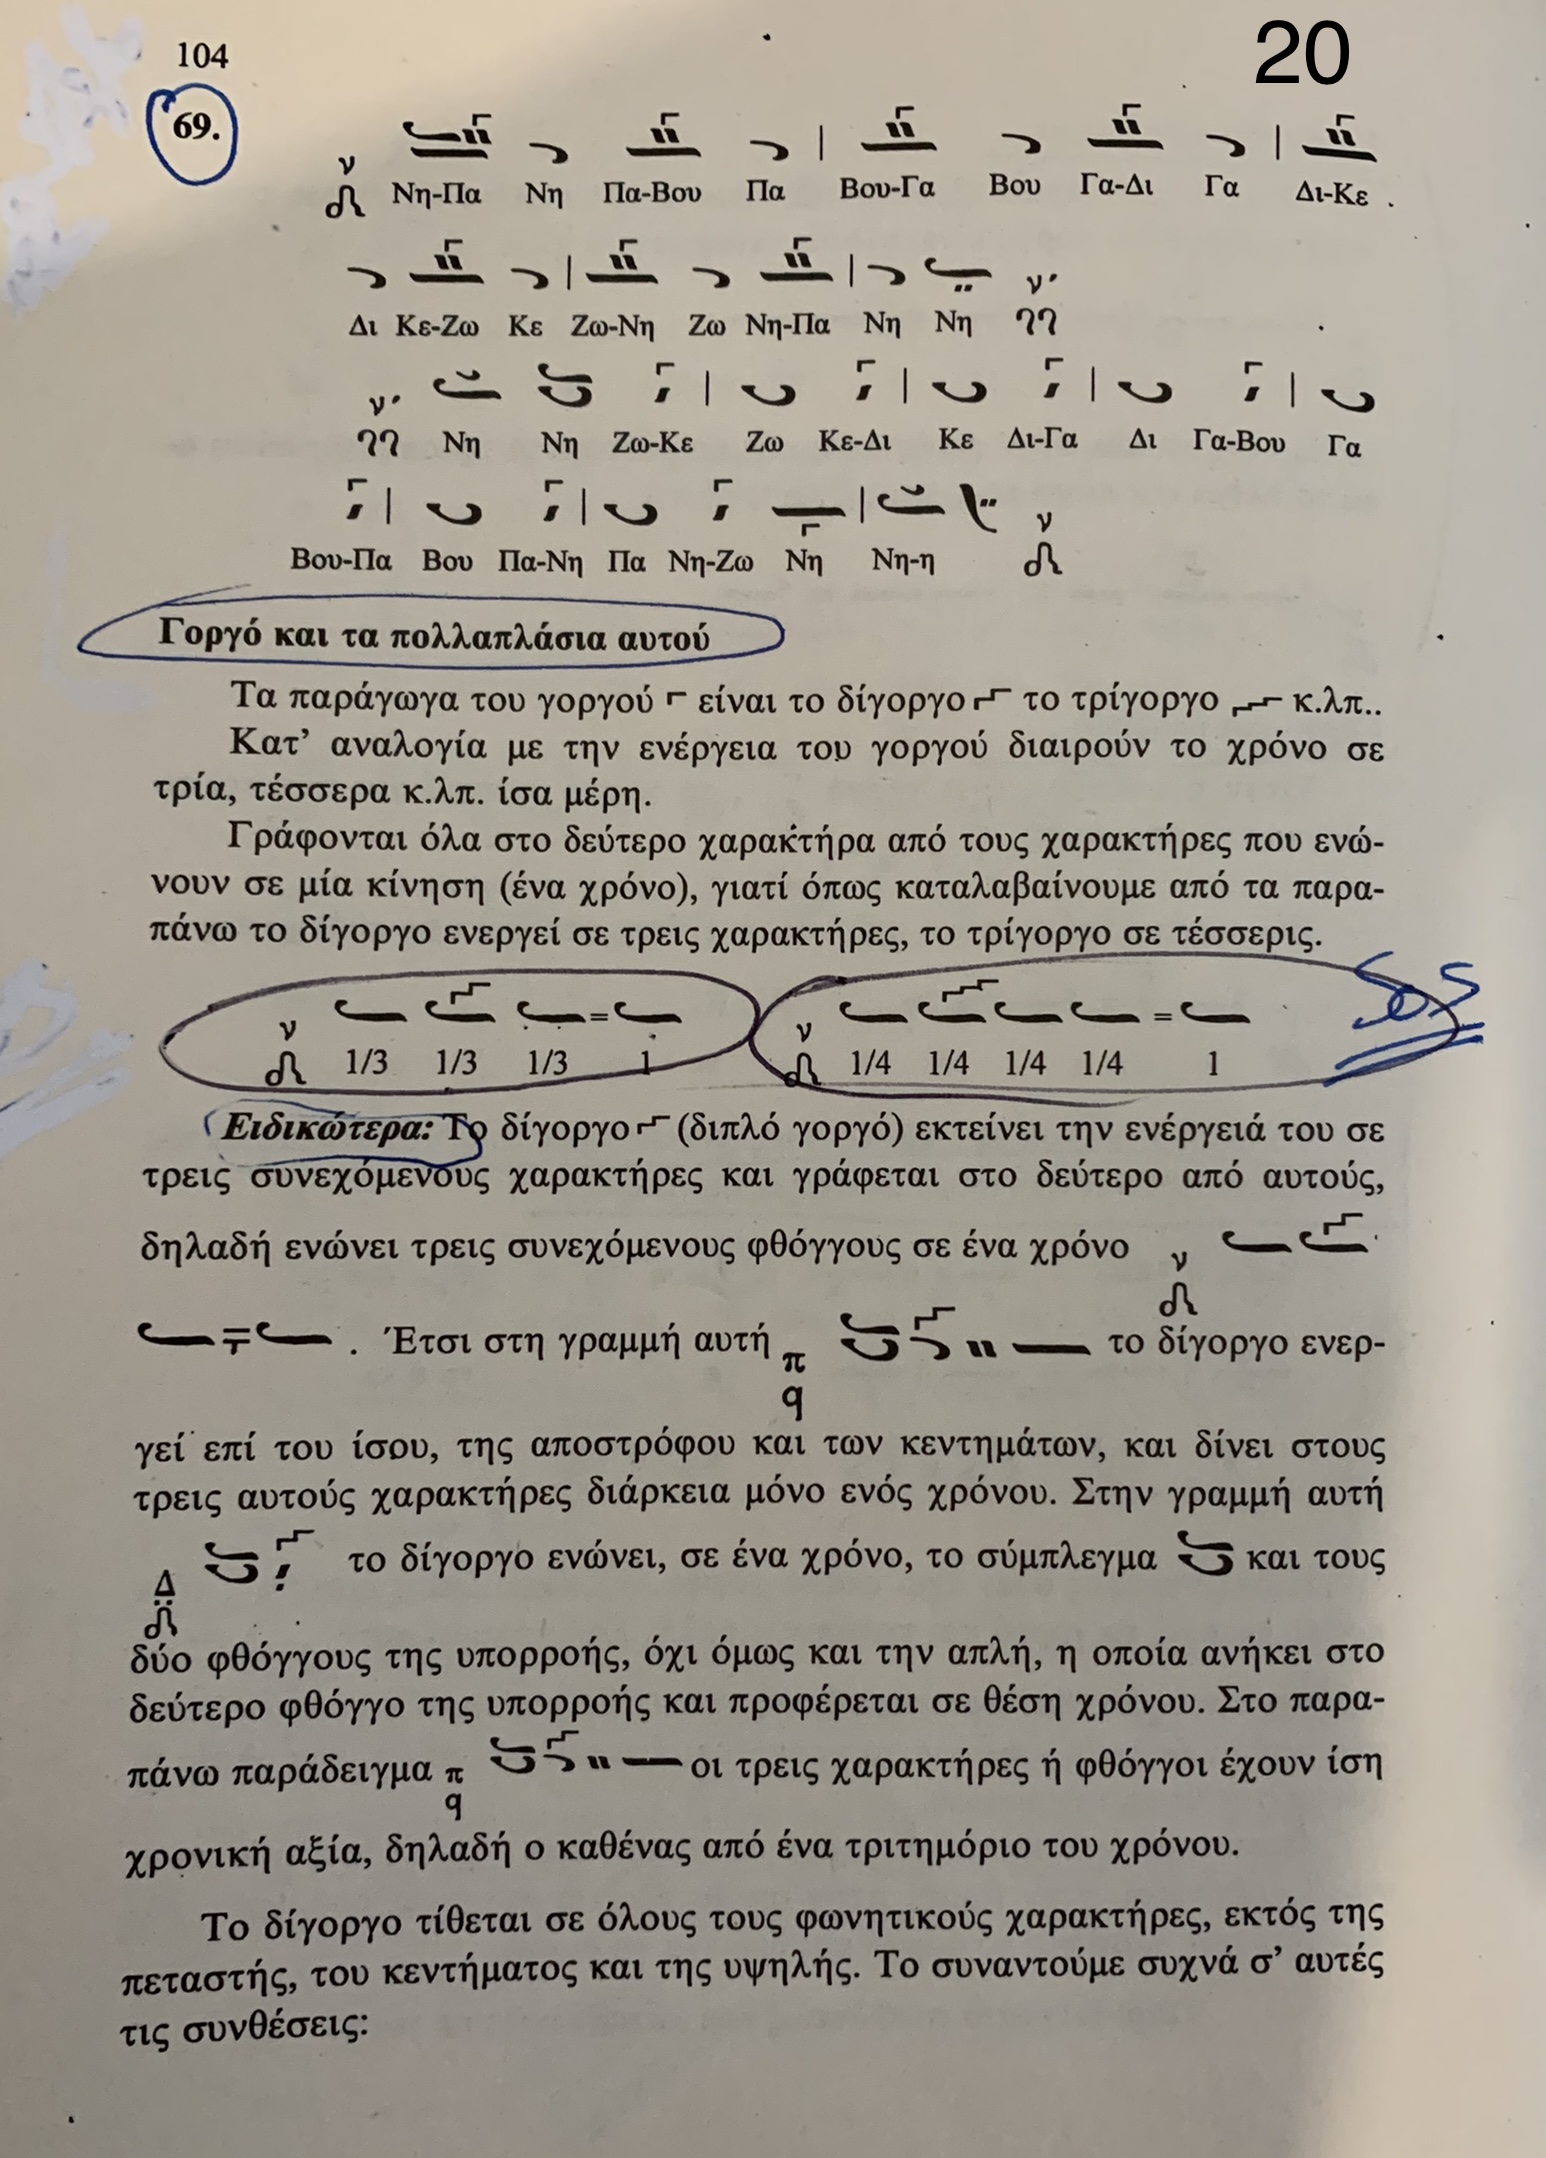 104
20
69.
ν Νη-Πα Νη Πα-Βου Πα | Βου-Γα Βου Γα-Δι Γα | Δι-Κε .
Δι Κε-Ζω Κε | Ζω-Νη Ζω Νη-Πα | Νη Νη ν'
ν' Νη Νη Ζω-Κε | Ζω Κε-Δι | Κε Δι-Γα | Δι Γα-Βου | Γα
Βου-Πα | Βου Πα-Νη | Πα Νη-Ζω Νη | Νη-η ν
Γοργό και τα πολλαπλάσια αυτού
Τα παράγωγα του γοργού είναι το δίγοργο το τρίγοργο κ.λπ..
Κατ’ αναλογία με την ενέργεια του γοργού διαιρούν το χρόνο σε
τρία, τέσσερα κ.λπ. ίσα μέρη.
Γράφονται όλα στο δεύτερο χαρακτήρα από τους χαρακτήρες που ενώ-
νουν σε μία κίνηση (ένα χρόνο), γιατί όπως καταλαβαίνουμε από τα παρα-
πάνω το δίγοργο ενεργεί σε τρεις χαρακτήρες, το τρίγοργο σε τέσσερις.
ν = ν = SOS
1/3 1/3 1/3 1 1/4 1/4 1/4 1/4 1
Ειδικώτερα: Το δίγοργο (διπλό γοργό) εκτείνει την ενέργειά του σε
τρεις συνεχόμενους χαρακτήρες και γράφεται στο δεύτερο από αυτούς,
δηλαδή ενώνει τρεις συνεχόμενους φθόγγους σε ένα χρόνο ν
= . Έτσι στη γραμμή αυτή π q το δίγοργο ενερ-
γεί επί του ίσου, της αποστρόφου και των κεντημάτων, και δίνει στους
τρεις αυτούς χαρακτήρες διάρκεια μόνο ενός χρόνου. Στην γραμμή αυτή
Δ το δίγοργο ενώνει, σε ένα χρόνο, το σύμπλεγμα και τους
δύο φθόγγους της υπορροής, όχι όμως και την απλή, η οποία ανήκει στο
δεύτερο φθόγγο της υπορροής και προφέρεται σε θέση χρόνου. Στο παρα-
πάνω παράδειγμα π q οι τρεις χαρακτήρες ή φθόγγοι έχουν ίση
χρονική αξία, δηλαδή ο καθένας από ένα τριτημόριο του χρόνου.
Το δίγοργο τίθεται σε όλους τους φωνητικούς χαρακτήρες, εκτός της
πεταστής, του κεντήματος και της υψηλής. Το συναντούμε συχνά σ’ αυτές
τις συνθέσεις: